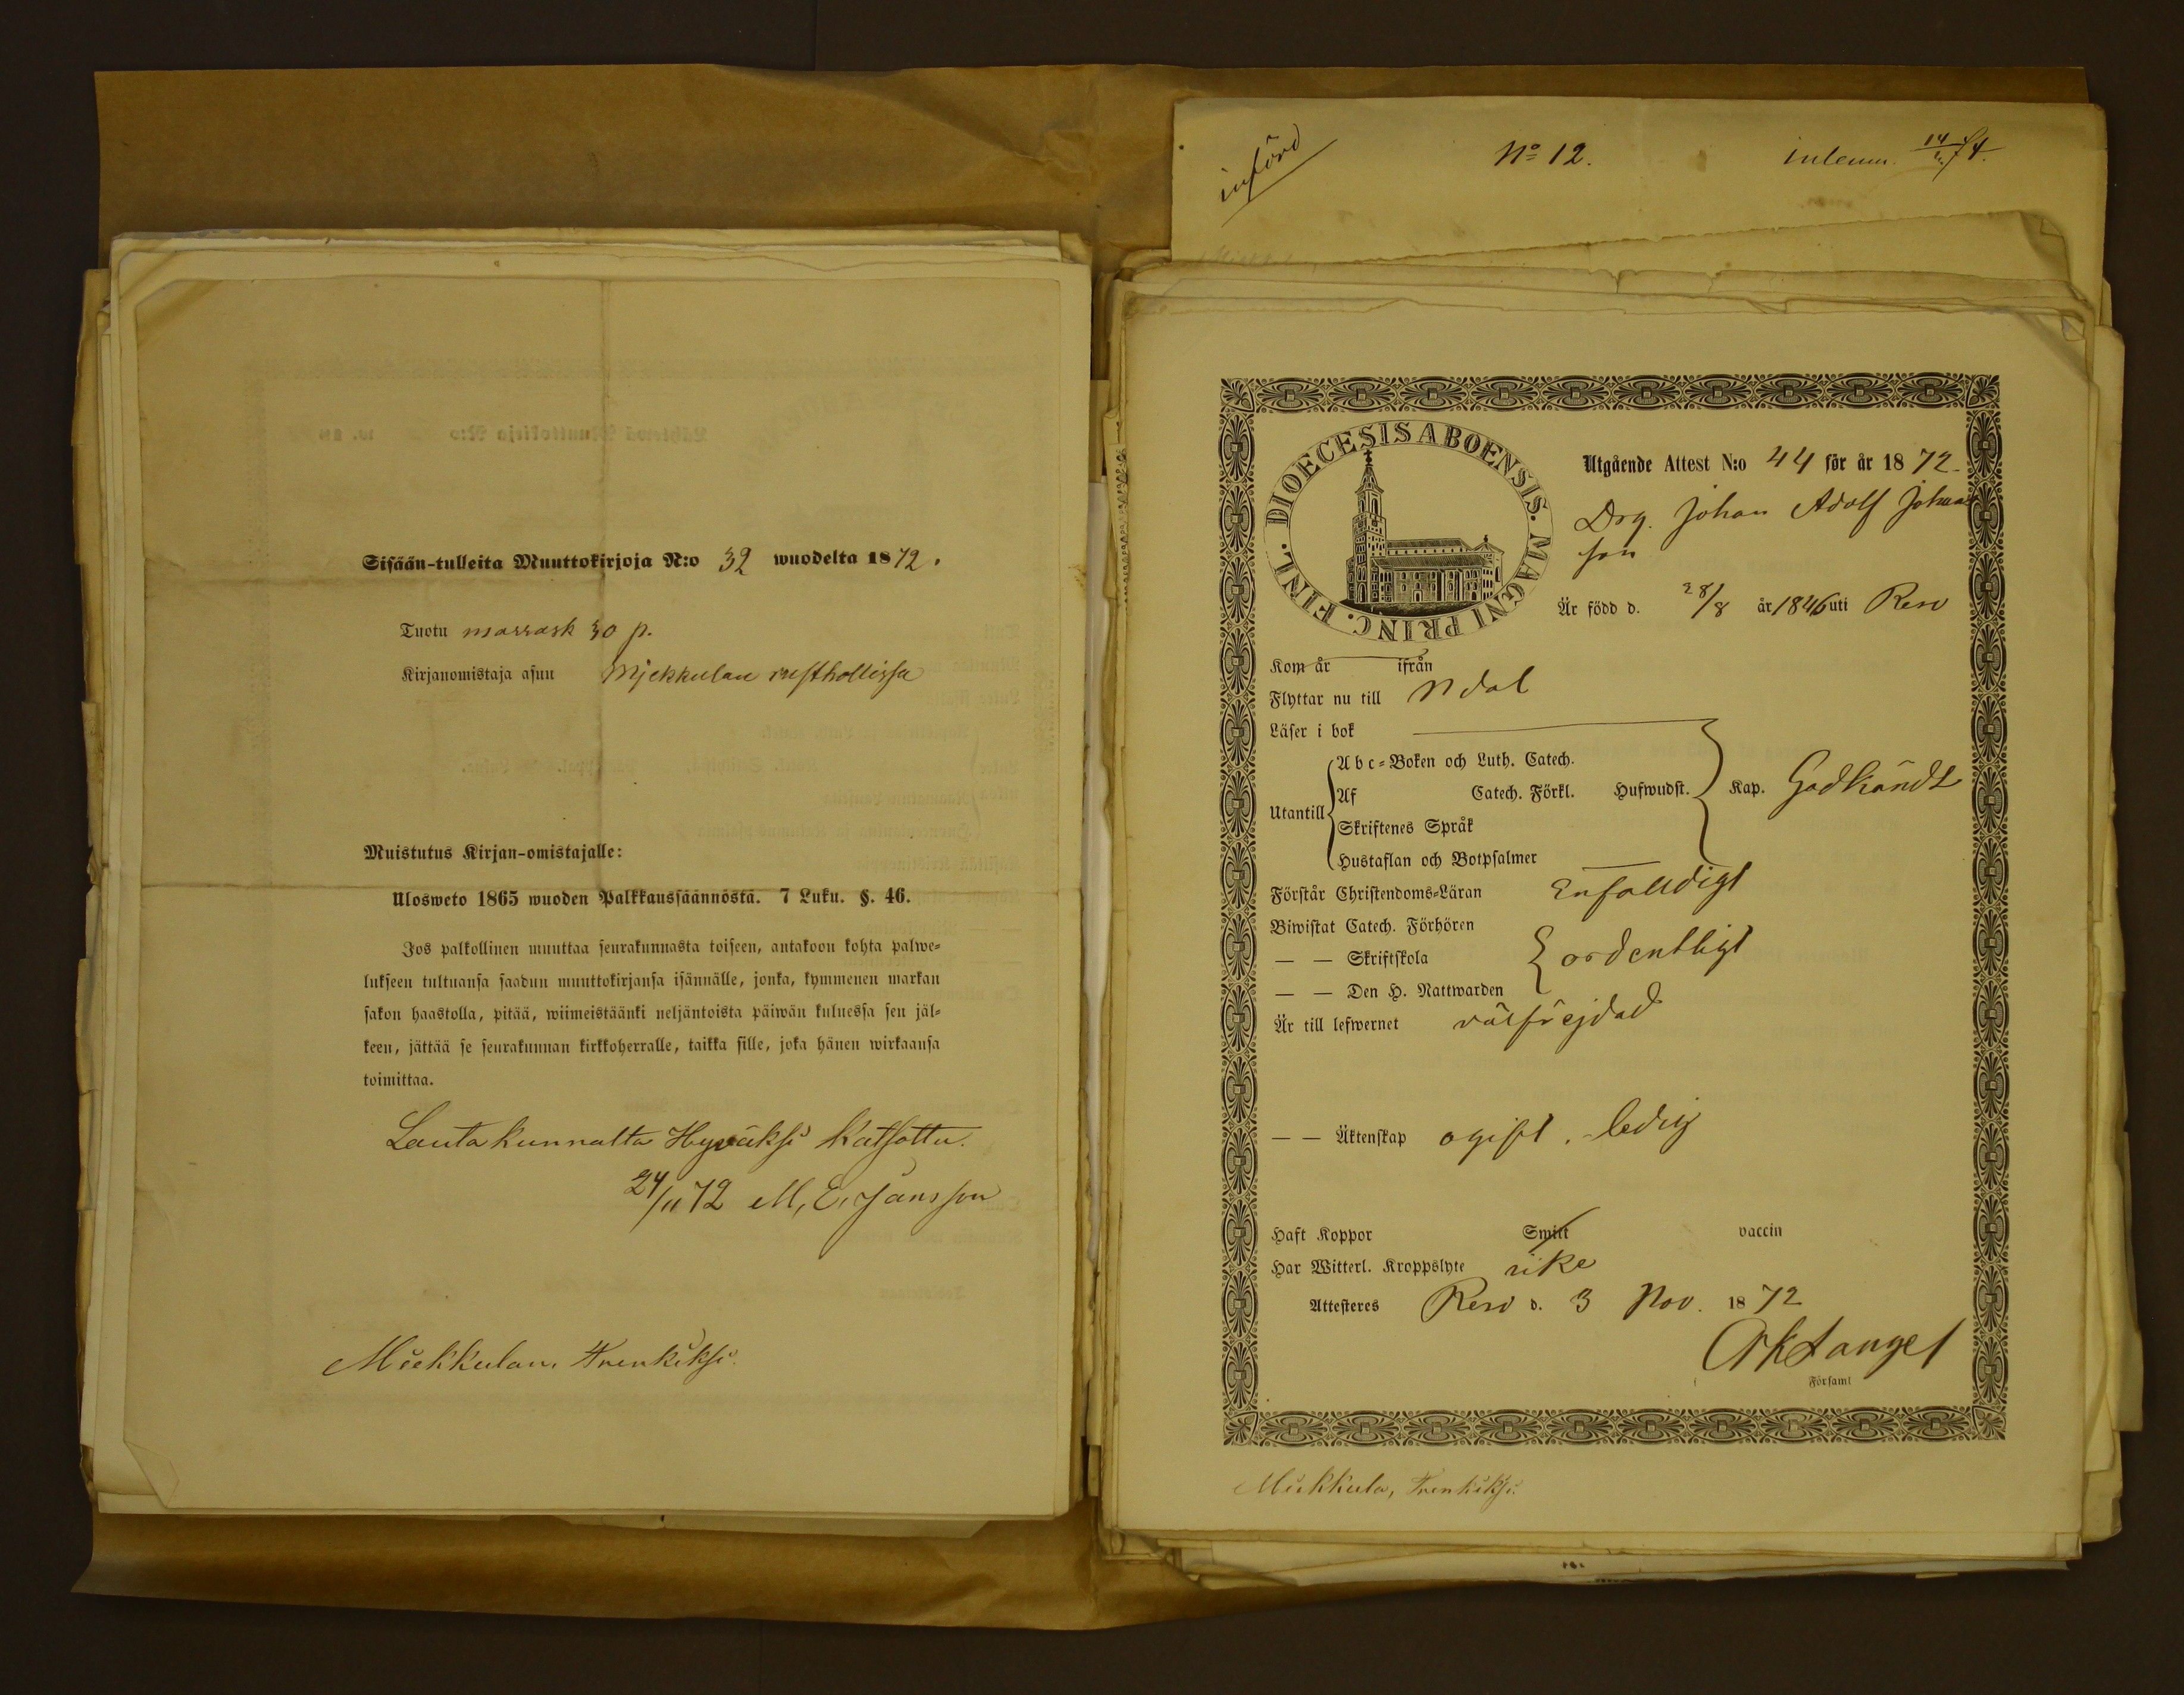 Sisään-tulleita Muuttokirjoja N:o 32 wuodelta 1872.
Tuotu marrask 30 p.
Kirjanomistaja asuu Mjekkulan rusthollissa
Muistutus Kirjan-omistajalle:
Ulosweto 1865 wuoden Palkkaussäännöstä. 7 Luku. §. 46.
Jos palkollinen muuttaa seurakunnasta toiseen, antakoon kohta palwe-
lukseen tultuansa saadun muuttokirjansa isännälle, jonka, kymmenen markan
sakon haastolla, pitää, wiimeistäänki neljäntoista päiwän kuluessa sen jäl-
keen, jättää se seurakunnan kirkkoherralle, taikka sille, joka hänen wirkaansa
toimittaa.
Lautakunnalta Hyväksi katsottu.
24/11 72 M, E, Jansson
Miekkulan, Trenkiksi.
införd
No 12.
inlemn. 14/ 74.
DIOECESIS ABOENSIS. MAGNI PRINC. FINL.
Utgående Attest N:o 44 för år 1872
Drg. Johan Adolf Johans
son
Är född d. 28/8 år 1846 uti Reso
Kom år ifrån
Flyttar nu till Ndal
Läser i bok
Utantill
Abc-Boken och Luth. Catech.
Af Catech. Förkl. Hufwudst. Kap. Godkändt
Skriftenes Språk
Hustaflan och Botpsalmer
Förstår Christendoms-Läran Enfalldigt
Biwistat Catech. Förhören
— — Skriftskola ordentligt
— — Den H. Nattwarden
Är till lefwernet välfrejdad
— — Äktenskap ogift. ledig
Haft Koppor Smitt vaccin
Har Witterl. Kroppslyte
Attesteres Reso d. 3 Nov. 1872
Församl
Miekkula, Trenkiksi.